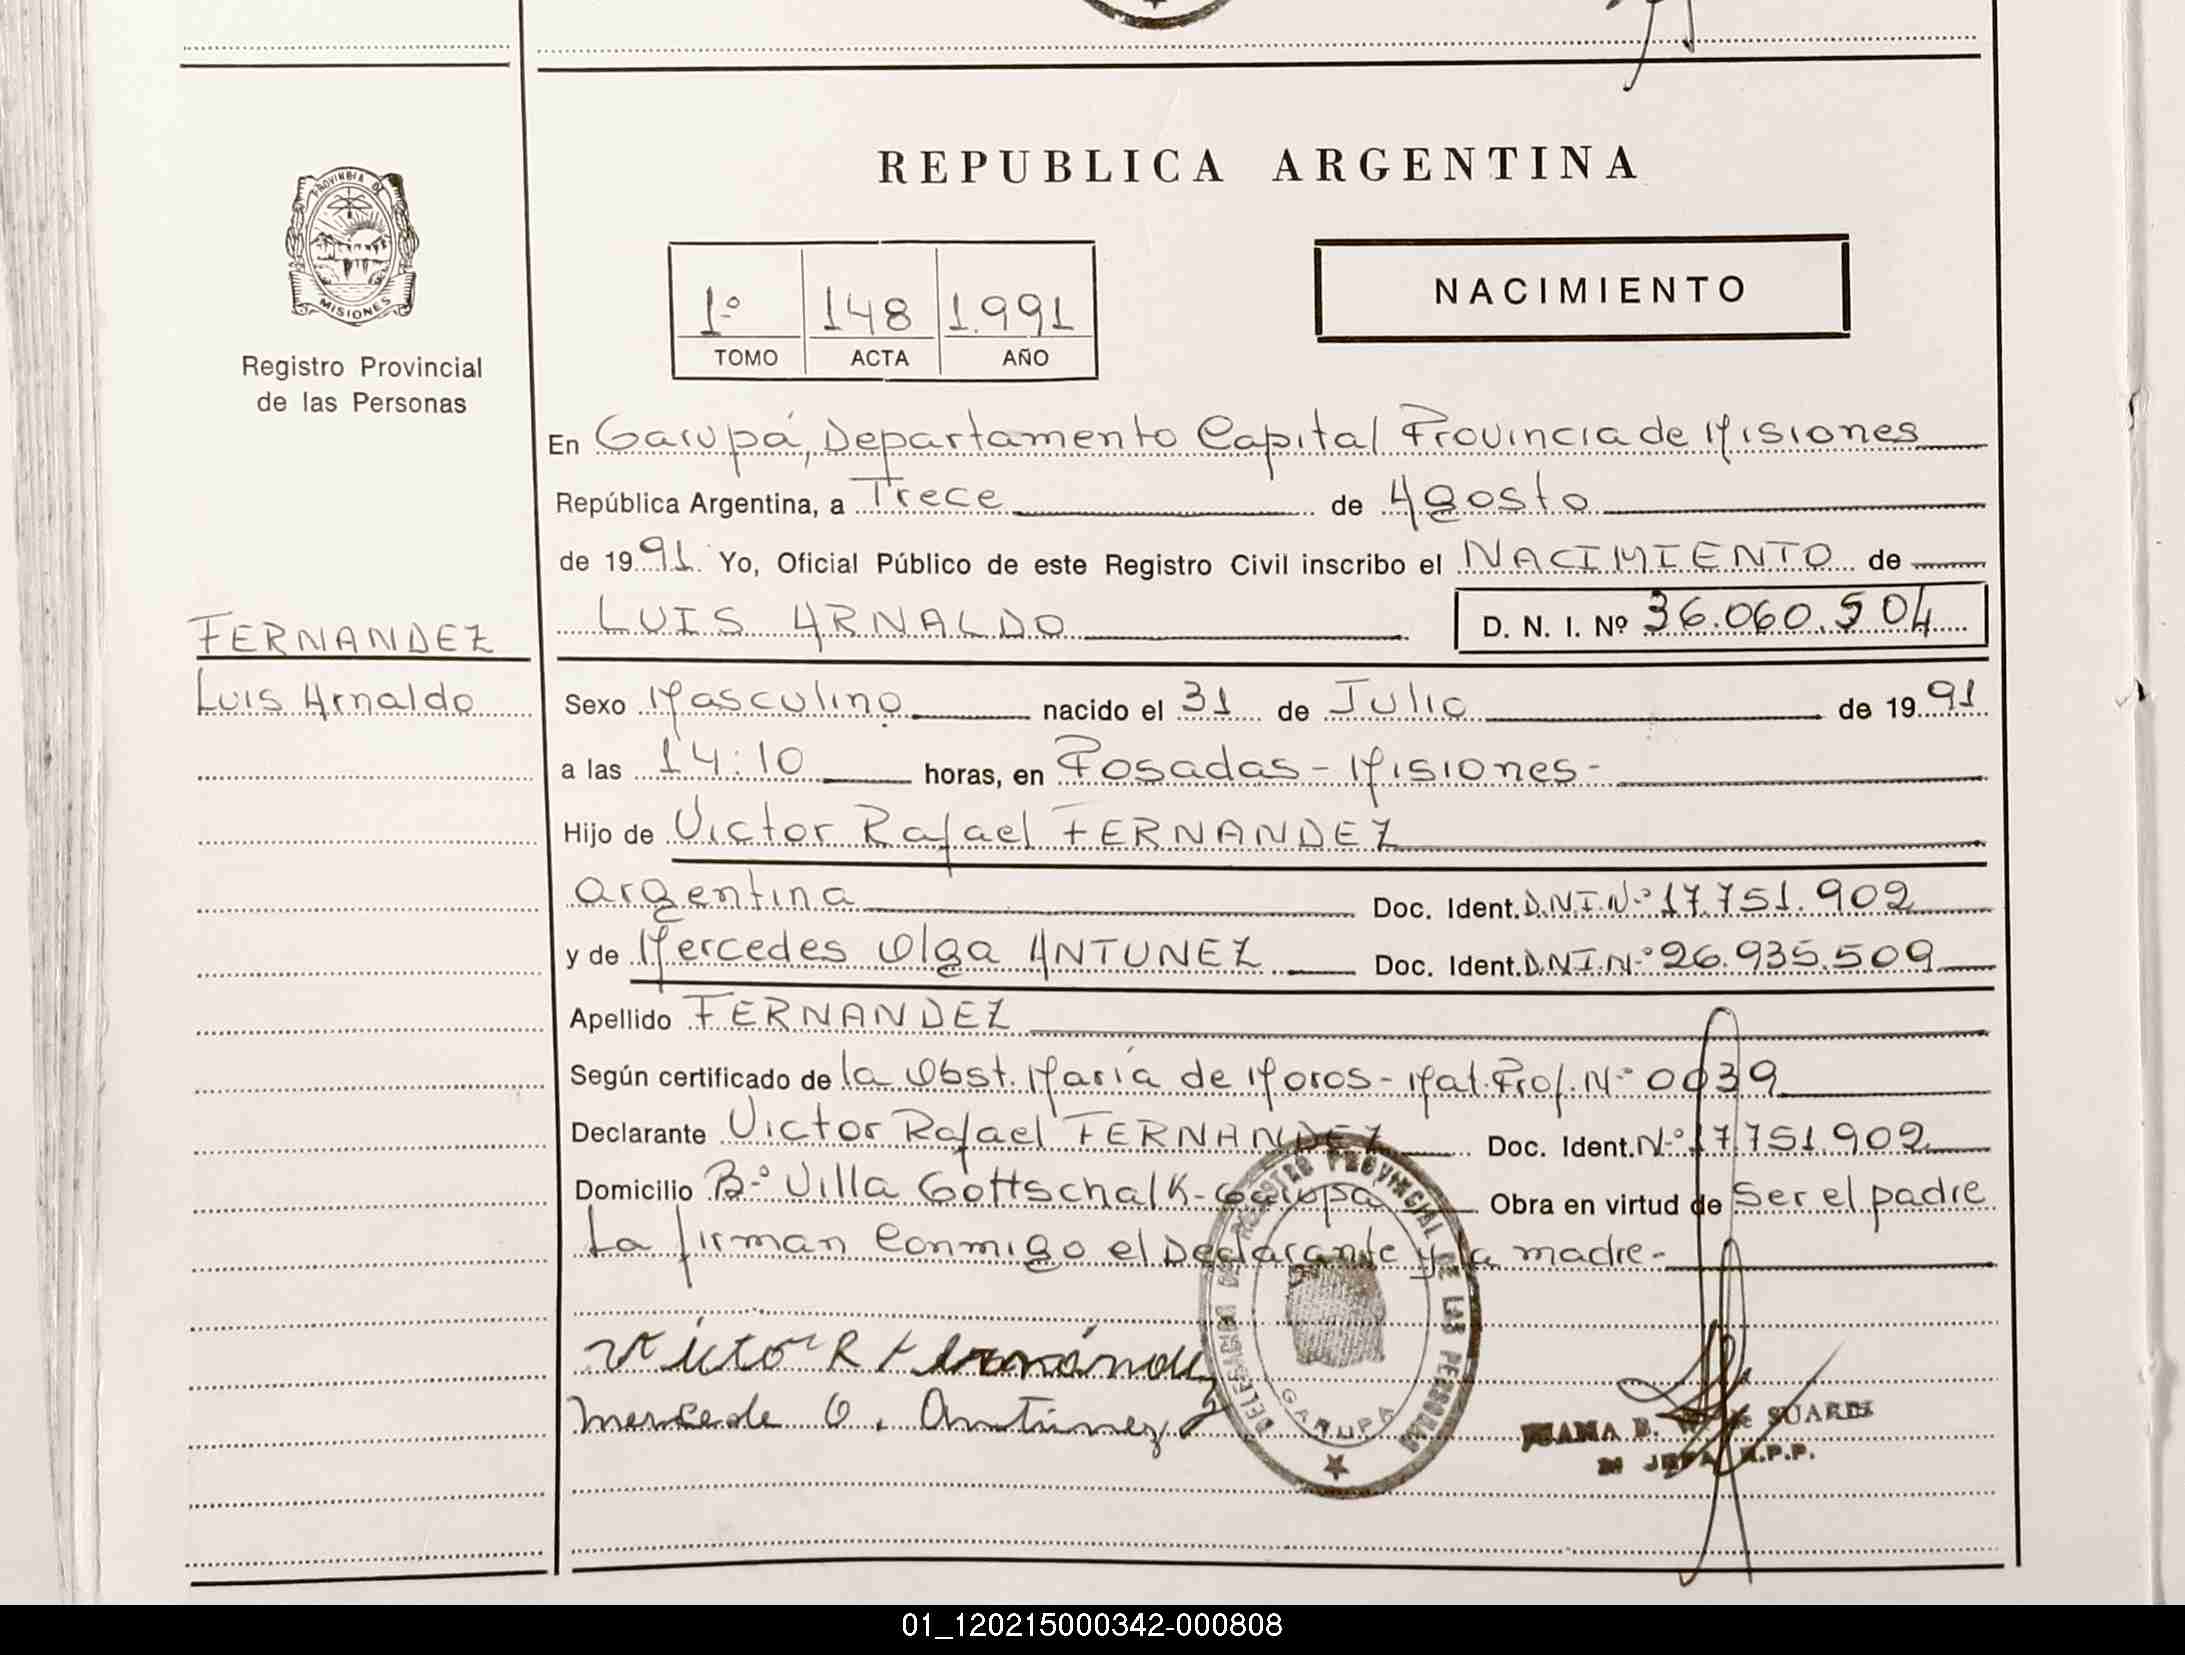 REPUBLICA ARGENTINA
PROVINCIA DE
MISIONES
Registro Provincial
de las Personas
1º 148 1.991
TOMO ACTA AÑO
NACIMIENTO
En Garupá, Departamento Capital Provincia de Misiones
República Argentina, a Trece de Agosto
de 1991 Yo, Oficial Público de este Registro Civil inscribo el NACIMIENTO de
FERNANDEZ
Luis Arnaldo
LUIS ARNALDO D. N. I. Nº 36.060.504
Sexo Masculino nacido el 31 de Julio de 1991
a las 14:10 horas, en Posadas - Misiones -
Hijo de Victor Rafael FERNANDEZ
argentina Doc. Ident. D.N.I. Nº 17.751.902
y de Mercedes Olga ANTUNEZ Doc. Ident. D.N.I. Nº 26.935.509
Apellido FERNANDEZ
Según certificado de la Obst. María de Moros - Mat. Prof. Nº 0039
Declarante Victor Rafael FERNANDEZ Doc. Ident. Nº 17.751.902
Domicilio Bº Villa Gottschalk - Garupa Obra en virtud de Ser el padre
La firman Conmigo el Declarante y la madre -
Victor R Fernández
Mercede O. Antúnez
DELEGACION DEL REGISTRO PROVINCIAL DE LAS PERSONAS
GARUPA
JUANA B. de SUARDI
JEFA R.P.P.
01_120215000342-000808